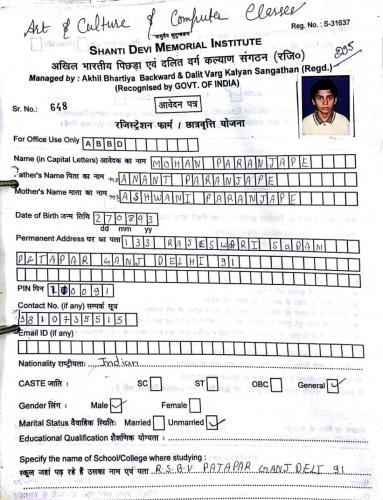 Art & Culture & Computer Classes
Reg. No. : S-31637
SHANTI DEVI MEMORIAL INSTITUTE
अखिल भारतीय पिछड़ा एवं दलित वर्ग कल्याण संगठन (रजि०)
Managed by : Akhil Bhartiya Backward & Dalit Varg Kalyan Sangathan (Regd.)
(Recognised by GOVT. OF INDIA)
Sr. No.: 648
आवेदन पत्र
रजिस्ट्रेशन फार्म / छात्रवृत्ति योजना
For Office Use Only ABBD
Name (in Capital Letters) आवेदक का नाम MOHAN PARANJAPE
Father's Name पिता का नाम ANANT PARANJAPE
Mother's Name माता का नाम ASHWANI PARANJAPE
Date of Birth जन्म तिथि 270893
dd mm yy
Permanent Address घर का पता 133 RAJESWARI SADAN
PETAPAR GANJ DELHI 91
PIN पिन 110091
Contact No. (if any) सम्पर्क सूत्र
Email ID (if any)
Nationality राष्ट्रीयता: Indian
CASTE जाति : SC ST OBC General ✓
Gender लिंग : Male ✓ Female
Marital Status वैवाहिक स्थिति: Married Unmarried ✓
Educational Qualification शैक्षणिक योग्यता :
Specify the name of School/College where studying :
स्कूल जहां पढ़ रहे हैं उसका नाम एवं पता R.S.B.V PATAPAR GANJ DELI 91